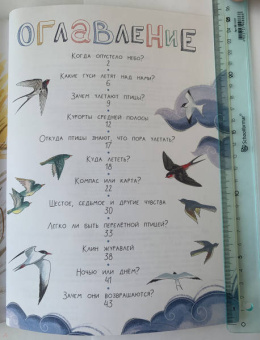 ОГЛАВЛЕНИЕ
Когда опустело небо?
2
Какие гуси летят над нами?
6
Зачем улетают птицы?
9
Курорты средней полосы
12
Откуда птицы знают, что пора улетать?
17
Куда лететь?
18
Компас или карта?
22
Шестое, седьмое и другие чувства
30
Легко ли быть перелётной птицей?
33
Клин журавлей
38
Ночью или днём?
41
Зачем они возвращаются?
43